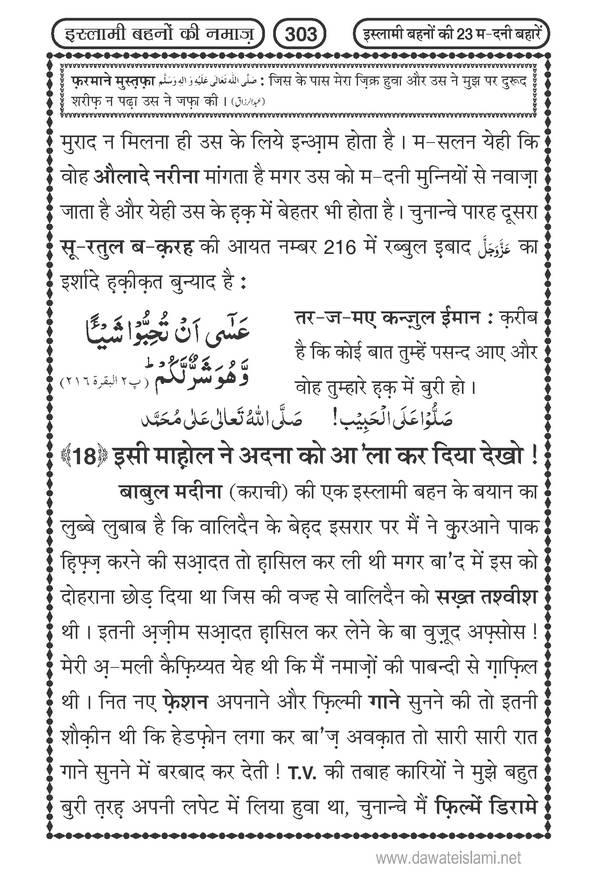 इस्लामी बहनों की नमाज़ 303 इस्लामी बहनों की 23 म-दनी बहारें
फ़रमाने मुस्तफ़ा صَلَّى اللهُ تَعَالٰى عَلَيْهِ وَاٰلِهٖ وَسَلَّم : जिस के पास मेरा ज़िक्र हुवा और उस ने मुझ पर दुरूद
शरीफ़ न पढ़ा उस ने जफ़ा की । (عبدالرزاق)
मुराद न मिलना ही उस के लिये इन्आ़म होता है । म-सलन येही कि
वोह औलादे नरीना मांगता है मगर उस को म-दनी मुन्नियों से नवाज़ा
जाता है और येही उस के ह़क़ में बेहतर भी होता है । चुनान्चे पारह दूसरा
सू-रतुल ब-क़रह की आयत नम्बर 216 में रब्बुल इ़बाद عَزَّوَجَلَّ का
इर्शादे ह़क़ीक़त बुन्याद है :
عَسٰۤى اَنْ تُحِبُّوْا شَيْـًٔا
وَّهُوَ شَرٌّ لَّكُمْ ؕ (پ۲ البقرة ۲۱٦)
तर-ज-मए कन्ज़ुल ईमान : क़रीब
है कि कोई बात तुम्हें पसन्द आए और
वोह तुम्हारे ह़क़ में बुरी हो ।
صَلُّوْا عَلَى الْحَبِيْب! صَلَّى اللهُ تَعَالٰى عَلٰى مُحَمَّد
﴾18﴿ इसी माह़ोल ने अदना को आ'ला कर दिया देखो !
बाबुल मदीना (कराची) की एक इस्लामी बहन के बयान का
लुब्बे लुबाब है कि वालिदैन के बेह़द इसरार पर मैं ने क़ुरआने पाक
ह़िफ़्ज़ करने की सआ़दत तो ह़ासिल कर ली थी मगर बा'द में इस को
दोहराना छोड़ दिया था जिस की वज्ह से वालिदैन को सख़्त तश्वीश
थी । इतनी अ़ज़ीम सआ़दत ह़ासिल कर लेने के बा वुजूद अफ़्सोस !
मेरी अ़-मली कैफ़िय्यत येह थी कि मैं नमाज़ों की पाबन्दी से ग़ाफ़िल
थी । नित नए फ़ेशन अपनाने और फ़िल्मी गाने सुनने की तो इतनी
शौक़ीन थी कि हेडफ़ोन लगा कर बा'ज़ अवक़ात तो सारी सारी रात
गाने सुनने में बरबाद कर देती ! T.V. की तबाह कारियों ने मुझे बहुत
बुरी त़रह़ अपनी लपेट में लिया हुवा था, चुनान्चे मैं फ़िल्में डिरामे
www.dawateislami.net